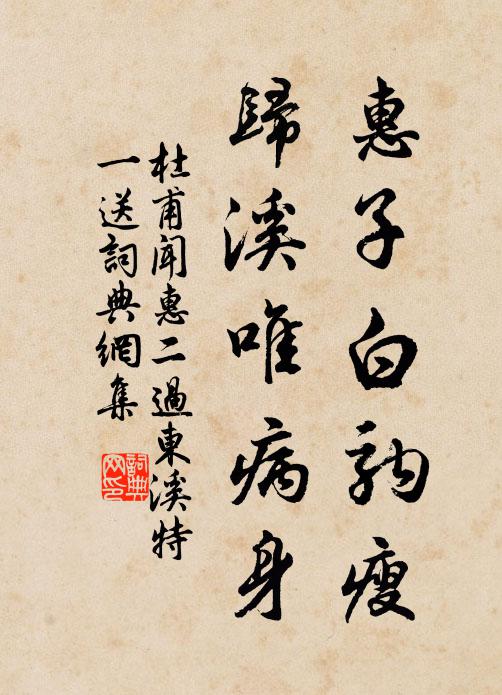 惠子白駒瘦
歸溪唯病身
杜甫聞惠二過東溪特
一送詞典網集
詞典
网印